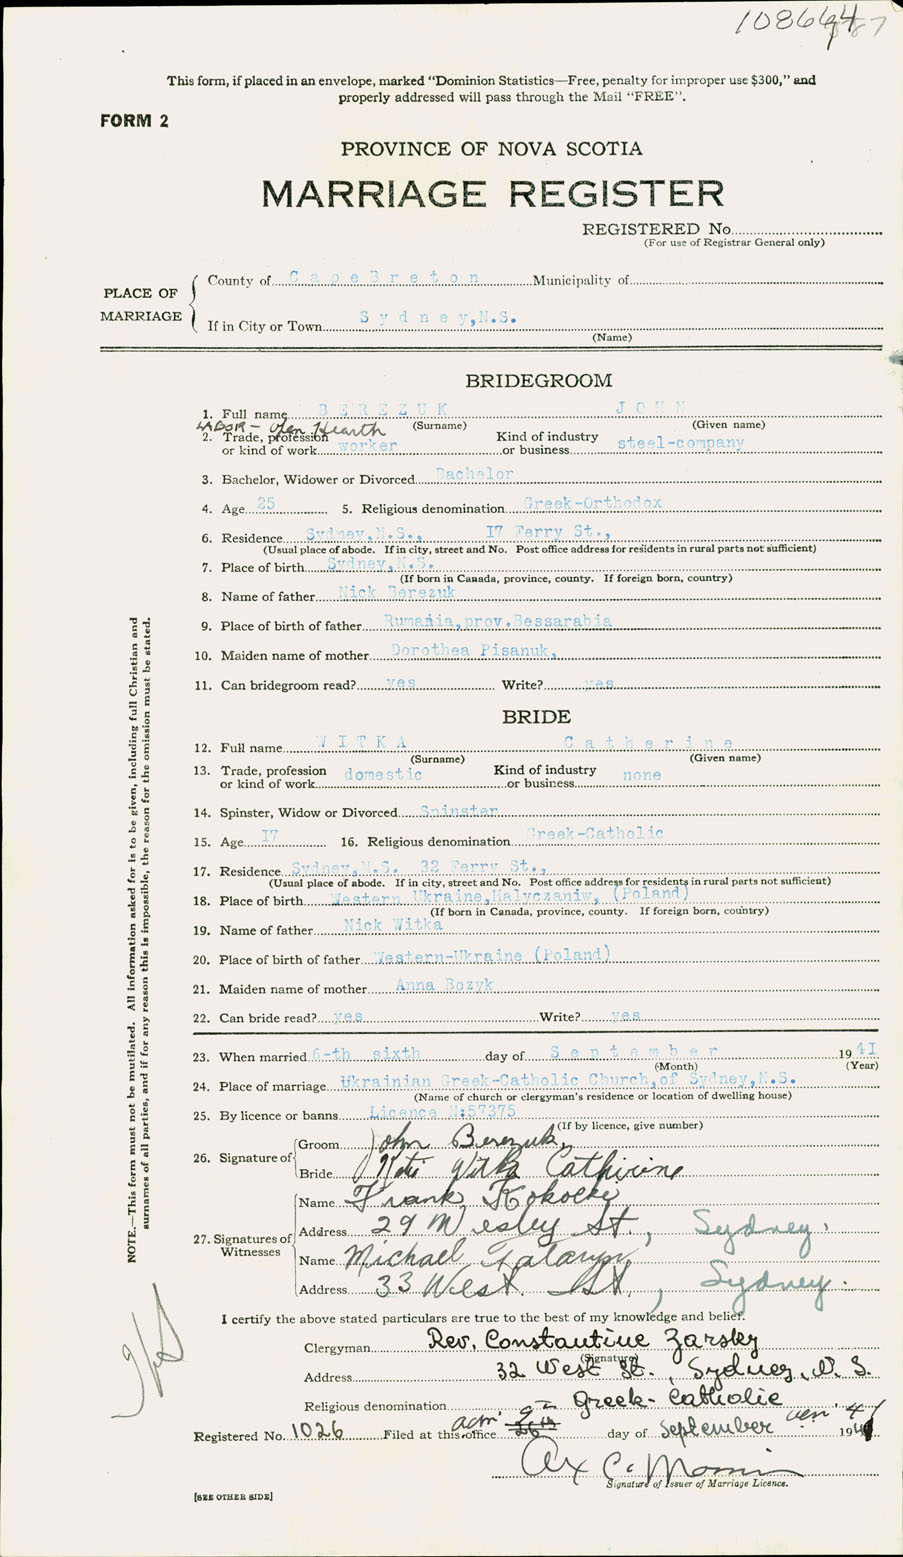 This form, if placed in an envelope, marked "Dominion Statistics—Free, penalty for improper use $300," and
properly addressed will pass through the Mail "FREE".
FORM 2
PROVINCE OF NOVA SCOTIA
MARRIAGE REGISTER
REGISTERED No.
(For use of Registrar General only)
PLACE OF MARRIAGE
County of CapeBreton Municipality of
If in City or Town Sydney,N.S.
(Name)
BRIDEGROOM
1. Full name BEREZUK JOHN
(Surname) (Given name)
LABOR - Open Hearth
2. Trade, profession or kind of work worker Kind of industry or business steel-company
3. Bachelor, Widower or Divorced Bachelor
4. Age 25 5. Religious denomination Greek-Orthodox
6. Residence Sydney,N.S., 17 Ferry St.,
(Usual place of abode. If in city, street and No. Post office address for residents in rural parts not sufficient)
7. Place of birth Sydney,N.S.
(If born in Canada, province, county. If foreign born, country)
8. Name of father Nick Berezuk
9. Place of birth of father Rumania,prov.Bessarabia
10. Maiden name of mother Dorothea Pisanuk,
11. Can bridegroom read? yes Write? yes
BRIDE
12. Full name WITKA Catherine
(Surname) (Given name)
13. Trade, profession or kind of work domestic Kind of industry or business none
14. Spinster, Widow or Divorced Spinster
15. Age 17 16. Religious denomination Greek-Catholic
17. Residence Sydney,N.S. 32 Ferry St.,
(Usual place of abode. If in city, street and No. Post office address for residents in rural parts not sufficient)
18. Place of birth Western Ukraine,Halyczaniw, (Poland)
(If born in Canada, province, county. If foreign born, country)
19. Name of father Nick Witka
20. Place of birth of father Western-Ukraine (Poland)
21. Maiden name of mother Anna Bozyk
22. Can bride read? yes Write? yes
23. When married 6-th sixth day of September 1941
(Month) (Year)
24. Place of marriage Ukrainian Greek-Catholic Church,of Sydney,N.S.
(Name of church or clergyman's residence or location of dwelling house)
25. By licence or banns Licence N:57375
(If by licence, give number)
26. Signature of Groom John Berezuk
Bride Katie Witka Cathirine
27. Signatures of Witnesses
Name Frank
Address 29 Wesley St., Sydney.
Name Michael
Address 33 West St., Sydney.
I certify the above stated particulars are true to the best of my knowledge and belief.
Clergyman Rev. Constantine Zarsky
(Signature)
Address 32 West St., Sydney, N. S.
Religious denomination Greek-Catholic
Registered No. 1026 Filed at this office day of September 1941
Signature of Issuer of Marriage Licence.
[SEE OTHER SIDE]
NOTE.—This form must not be mutilated. All information asked for is to be given, including full Christian and
surnames of all parties, and if for any reason this is impossible, the reason for the omission must be stated.